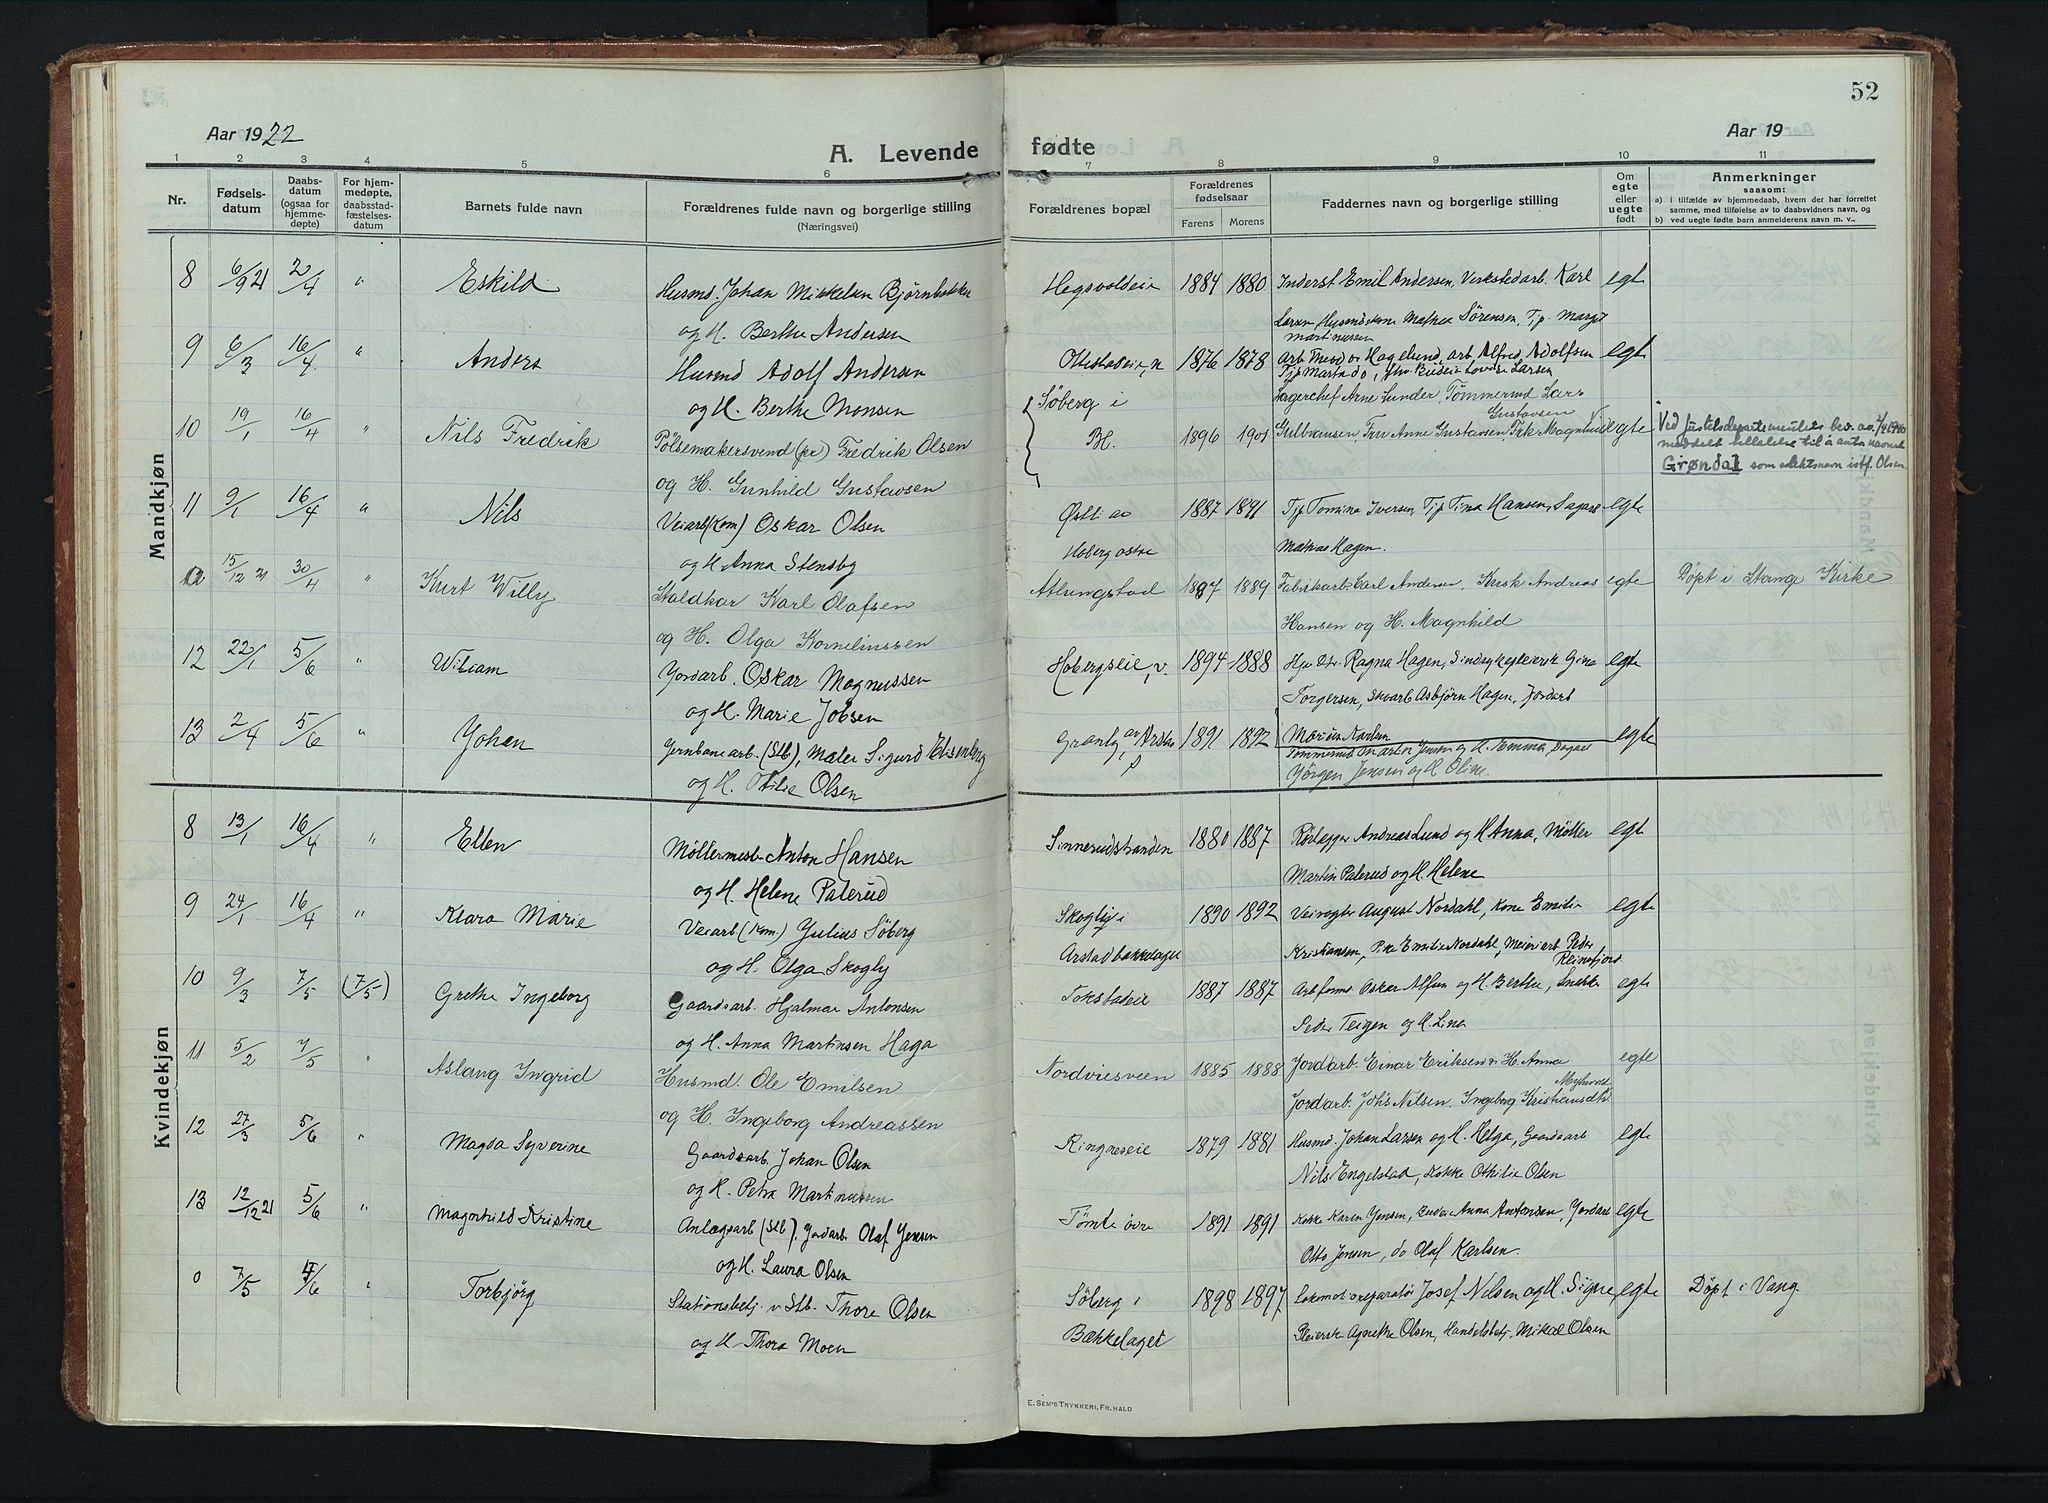 52
Aar 1922
A. Levende fødte
Aar 19
1 2 3 4 5 6 7 8 9 10 11
Nr.
Fødsels-
datum
Daabs-
datum
(ogsaa for
hjemme-
døpte)
For hjem-
medøpte,
daabsstad-
fæstelses-
datum
Barnets fulde navn
Forældrenes fulde navn og borgerlige stilling
(Næringsvei)
Forældrenes bopæl
Forældrenes
fødselsaar
Farens Morens
Faddernes navn og borgerlige stilling
Om
egte
eller
uegte
født
Anmerkninger
saasom:
a) i tilfælde av hjemmedaab, hvem der har forrettet
samme, med tilføielse av to daabsvidners navn, og
b) ved uegte fødte barn anmelderens navn m. v..
Mandkjøn
8 6/9 21 2/4 " Eskild Husmd. Johan Mikkelsen 1884 1880 Inderst Emil Andersen, Verkstedarb. Karl egte
og H. Berthe Andersen Larsen Mathea Sörensen, Tj.p. Margit
Martinussen
9 6/3 16/4 " Anders Husmd Adolf Andersen 1876 1878 Arb. Hagelund, arb. Alfred Adolfsen egte
Lovise Larsen
og H. Berthe Monsen Söberg i Lagerchef Arne Sunder, Tømmermd Lars
Gustavsen
10 19/1 16/4 " Nils Fredrik Pölsemakersvend (pr) Fredrik Olsen B.H. 1896 1901 Gulbransen, Fru Anne Gustavsen, Frk Magnhild egte
Ved justisdepartementets bev. av
meddelt tillatelse til å anta navnet
Grøndal som slektsnavn istf. Olsen
og H. Gunhild Gustavsen
11 9/1 16/4 " Nils Veiarb (Kom) Oskar Olsen Østli av 1887 1891 Tjp Tomina Iversen, Tjp Tina Hansen, egte
og H Anna Stensby Hoberg østre Mathias Hagen.
15/12 21 30/4 " Kurt Willy Staldkar Karl Olafsen Atlungstad 1897 1889 Fabrikarb. Carl Andersen, Andreas egte Döpt i Stange Kirke
og H. Olga Korneliussen Hansen og H. Magnhild
12 22/1 5/6 " Wiliam Jordarb. Oskar Magnussen Hobergseie, v. 1894 1888 Ragna Hagen, Sindsykepleierske Gina egte
og H. Marie Jobsen Torgersen, Skoarb Asbjörn Hagen, Jordarb
13 2/4 5/6 Johan Jernbanearb. (Stb), Maler Sigurd 1891 1892 Karlsen egte
og H. Otilie Olsen Tømmermd Martin Jensen og H. Emma,
Jörgen Jensen og H Oline.
Kvindekjøn
8 13/1 16/4 " Ellen Möllermest. Anton Hansen Sinnerudstranden 1880 1887 Andreas Lund og H Anna, Möller egte
og H. Helene Palerud Martin Palerud og H. Helene
9 24/1 16/4 " Klara Marie Veiarb (Kom.) Julius Söberg Skogly i 1890 1892 Veivogter August Nordahl, Kone Emilie egte
og H. Olga Skogly Arstadbækkelaget Kristiansen, P.ke Emilie Nordahl, Meieriarb Peder
Reinsfjord
10 9/3 7/5 (7/5) Grethe Ingeborg Gaardsarb. Hjalmar Antonsen Tokstadeie 1887 1887 Arbformd. Oskar Alfsen og H. Berthe, Snekker egte
og H. Anna Martinsen Haga Peder Teigen og H. Lina
11 5/2 7/5 " Aslaug Ingrid Husmd. Ole Emilsen Nordviesveen 1885 1888 Jordarb. Einar Eriksen H. Anna egte
og H. Ingeborg Andreassen Jordarb. Johs Nilsen, Ingeborg Kristiansdtr.
12 27/3 5/6 " Magda Syverine Gaardsarb. Johan Olsen Ringneseie 1879 1881 Husmd. Johan Larsen og H. Helga, Gaardsarb egte
og H. Petra Martinussen Nils Engelstad, Kokke Othilie Olsen
13 12/12 21 5/6 " Magnhild Kristine Anlægsarb (Stb), Jordarb Olaf Jensen Tömte övre 1891 1891 Kokke Karen Jensen, Anna Antonsen, Jordarb egte
og H. Laura Olsen Otto Jensen, do Olaf Karlsen.
0 7/5 /6 " Torbjörg Stationsbetj. v Stb. Thore Olsen Söberg i 1898 1897 Lokomotivreparatör Josef Nilsen og H. Signe, egte Döpt i Vang.
og H Thora Moen Bækkelaget Pleierske Agnethe Olsen, Handelsbetj. Mikal Olsen
E. SEM'S TRYKKERI, FR. HALD